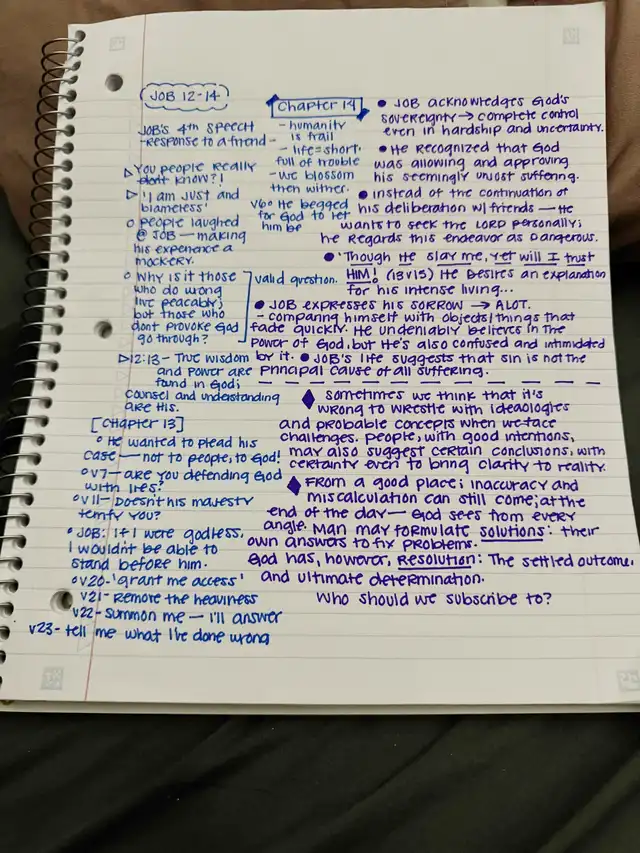 JOB 12-14
JOB'S 4th SPEECH
-response to a friend-
You people really
dont know?!
'I am JUST and
blameless'
PEOPLE laughed
@ JOB - making
his experience a
mockery.
Why is it those
who do wrong
live peacably;
but those who
dont provoke God
go through?
valid question.
12:13 - True wisdom
and power are
found in God;
counsel and understanding
are His.
[Chapter 13]
He wanted to plead his
case - not to people, to God!
v7 - are you defending God
with lies?
v11 - Doesn't his majesty
terrify you?
JOB: If I were godless,
I wouldn't be able to
stand before him.
v20 - 'grant me access'
v21 - Remove the heaviness
v22 - Summon me - I'll answer
v23 - tell me what I've done wrong
Chapter 14
- humanity
is frail
- life = short,
full of trouble
- we blossom
then wither.
v6 He begged
for God to let
him be
JOB acknowledges God's
sovereignty → complete control
even in hardship and uncertainty.
He recognized that God
was allowing and approving
his seemingly unjust suffering.
instead of the continuation of
his deliberation w/ friends - He
wants to seek the LORD personally;
he regards this endeavor as dangerous.
'Though He slay me, yet will I trust
HIM! (13v15) He desires an explanation
for his intense living...
JOB expresses his sorrow → ALOT.
- comparing himself with objects/things that
fade quickly. He undeniably believes in the
power of God, but He's also confused and intimidated
by it. JOB's life suggests that sin is not the
prinapal cause of all suffering.
sometimes we think that it's
wrong to wrestle with ideologies
and probable concepts when we face
challenges. people, with good intentions,
may also suggest certain conclusions, with
certainty even to bring clarity to reality.
From a good place; inaccuracy and
miscalculation can still come; at the
end of the day - God sees from every
angle. Man may formulate solutions: their
own answers to fix problems.
God has, however, Resolution: The settled outcome,
and ultimate determination.
Who should we subscribe to?